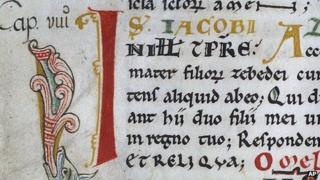 Cap. viii
S. IACOBI
Acce
mater filior zebedei cu
tens aliquid ab eo; Qui d
ant hii duo filii mei un
in regno tuo; Responden
ET RELIQVA; Omel
AP